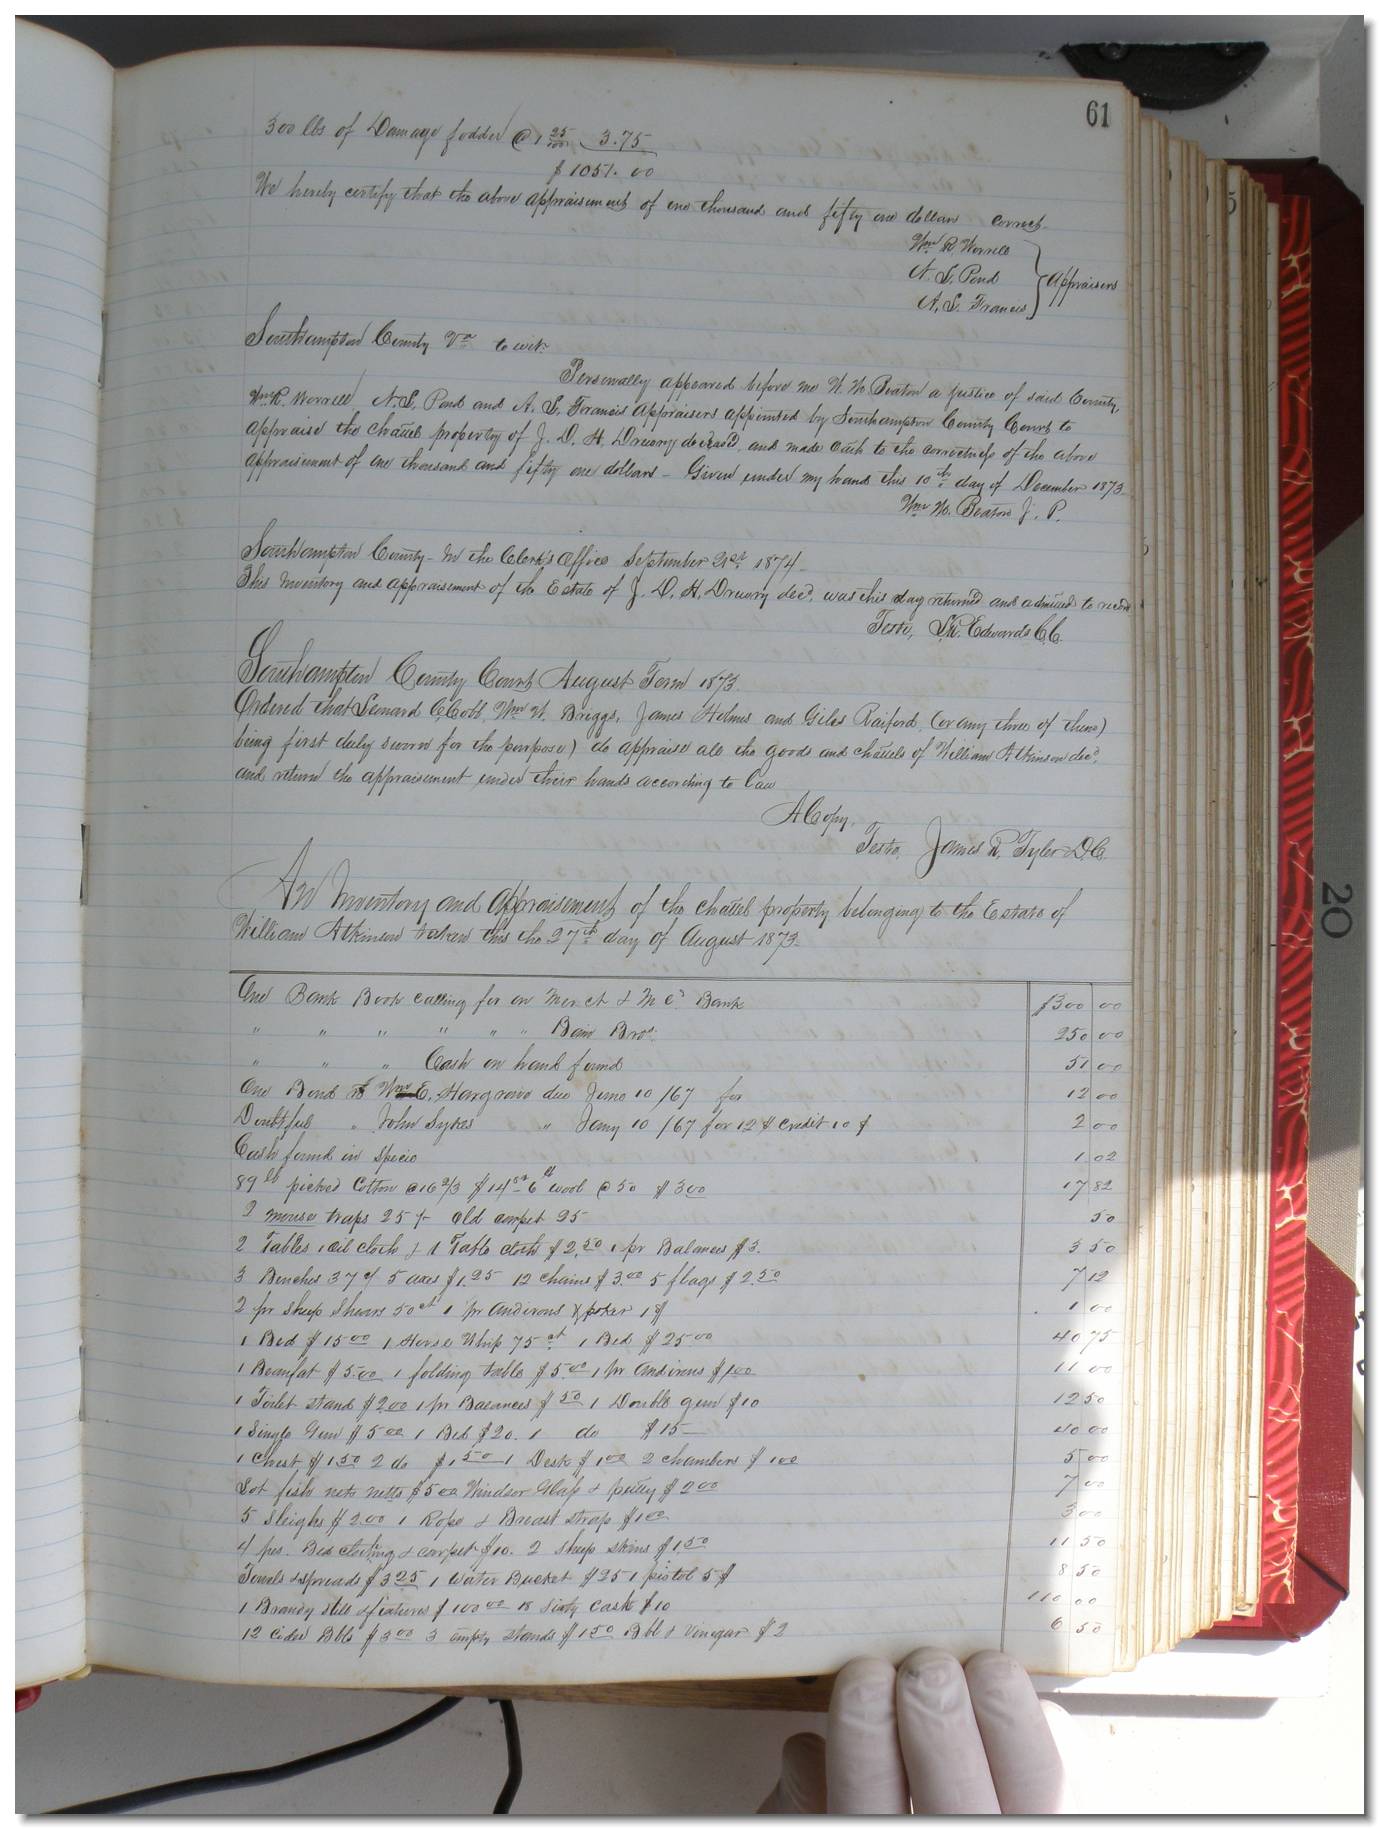 61
300 lbs of Damage fodder @ 1 25/100 3.75
$1051.00
We hereby certify that the above appraisement of one thousand and fifty one dollars correct
Wm R. Worrell
N. S. Pond
A. S. Francis
Appraisers
Southampton County Va to wit:
Personally appeared before me W. W. Beaton a justice of said County,
Wm R. Worrell N. S. Pond and A. S. Francis appraisers appointed by Southampton County Court to
appraise the chattel property of J. D. H. Drewry deceased, and made oath to the correctness of the above
appraisement of one thousand and fifty one dollars – Given under my hand this 10th day of December 1873
Wm W. Beaton J. P.
Southampton County – In the Clerk's Office September 21st 1874 –
This Inventory and appraisement of the Estate of J. D. H. Drewry decd. was this day returned and admitted to record
Teste, L. R. Edwards C.C.
Southampton County Court August Term 1873.
Ordered that Leonard C. Cobb, Wm W. Briggs, James Holmes and Giles Raiford (or any three of them)
being first duly sworn for the purpose) do appraise all the goods and chattels of William Atkinson decd.
and return the appraisement under their hands according to law
A Copy,
Teste, James R. Tyler D.C.
An Inventory and appraisement of the chattel property belonging to the Estate of
William Atkinson taken this the 27th day of August 1873.
One Bank Book calling for on Merct & Mc's Bank $300 00
" " " " " " Bain Bros. 250 00
" " Cash on hand found 51 00
One Bond Wm E. Hargrave due June 10 /67 for 12 00
Doubtful " John Sykes " Jany 10 /67 for 12 $ credit 10 $ 2 00
Cash found in specie 1 02
89 lb picked Cotton @ 16 2/3 $14 82 6 lb wool @ 50 $3 00 17 82
2 mouse traps 25 f old carpet 25 50
2 Tables 1 oil cloth & 1 Table cloth $2.50 1 pr Balances $3. 3 50
3 Benches 37 c 5 axes $1.25 12 chains $3.00 5 flags $2.50 7 12
2 pr sheep Shears 50 ct 1 pr andirons & poker 1 $ 1 00
1 Bed $15 00 1 Horse Whip 75 ct 1 Bed $25 00 40 75
1 Beaufat $5.00 1 folding table $5.00 1 pr andirons $1.00 11 00
1 Toilet stand $2.00 1 pr Balances $ 50 1 Double gun $10 12 50
1 Single Gun $5 00 1 Bed $20. 1 do $15 – 40 00
1 Chest $1 50 2 do $1 50 1 Desk $1 00 2 chambers $1 00 5 00
Lot fish nets netts $5 00 Windsor Glass & putty $2 00 7 00
5 Sleighs $2.00 1 Rope & Breast strap $1 00 3 00
4 pcs. Bed clothing & carpet $10. 2 Sheep skins $1.50 11 50
Towels & spreads $3 25 1 Water Bucket $25 1 pistol 5 $ 8 50
1 Brandy still & fixtures $100 00 18 Sixty cask $10 110 00
12 cider Bbls $3 00 3 empty stands $1 50 Bbl & Vinegar $2 6 50